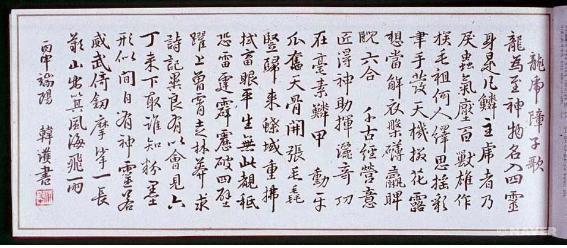 龍虎障子歌
龍為至神物名入四靈
身異凡鱗主虎者乃
戾虫氣壓百獸雄作
毛祖何人繹思搖彩
聿手發天機披花露
想當解衣槃礴羸睥
睨六合千古經營意
匠得神助揮灑奇功
在毫素鱗甲動牙
瓜奮天骨開張毛毿
豎歸來絛城重拂
拭審眼平生無此覩秪
恐雷霆霹靂破四壁
躍上曾霄走林莽求
詩記異良有以會見六
丁來下取誰知粉墨
形似間自有神靈若
威武倚釰摩挲一長
嘯山出箕風海飛雨
丙申端陽 韓濩書
NAVER